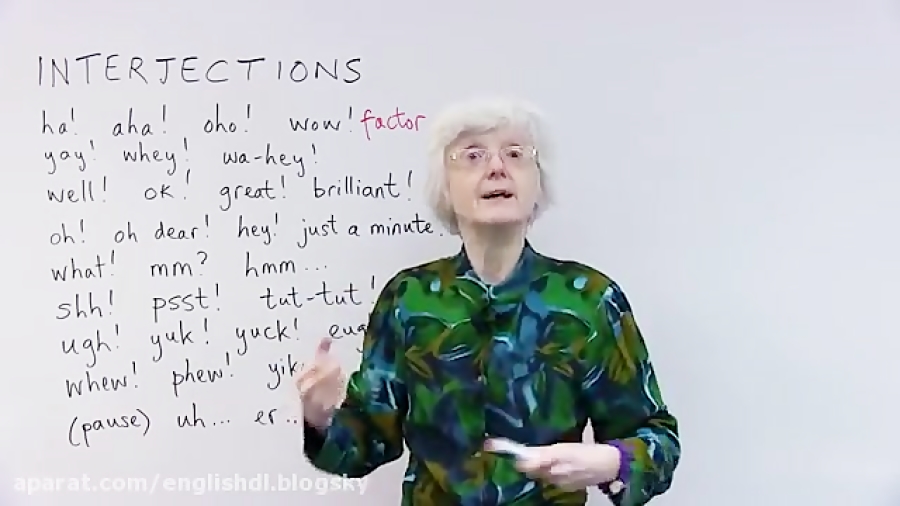 INTERJECTIONS
ha! aha! oho! wow! factor
yay! whey! wa-hey!
well! ok! great! brilliant!
oh! oh dear! hey! just a minute.
what! mm? hmm...
shh! psst! tut-tut!
ugh! yuk! yuck!
whew! phew!
(pause) uh... er..
aparat.com/englishdl.blogsky